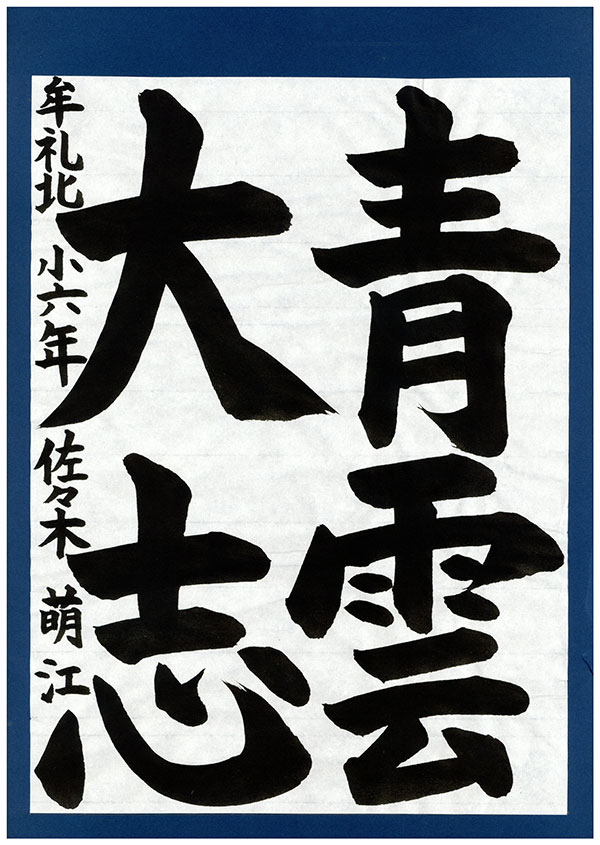 青雲
大志
牟礼北 小六年 佐々木 萌江